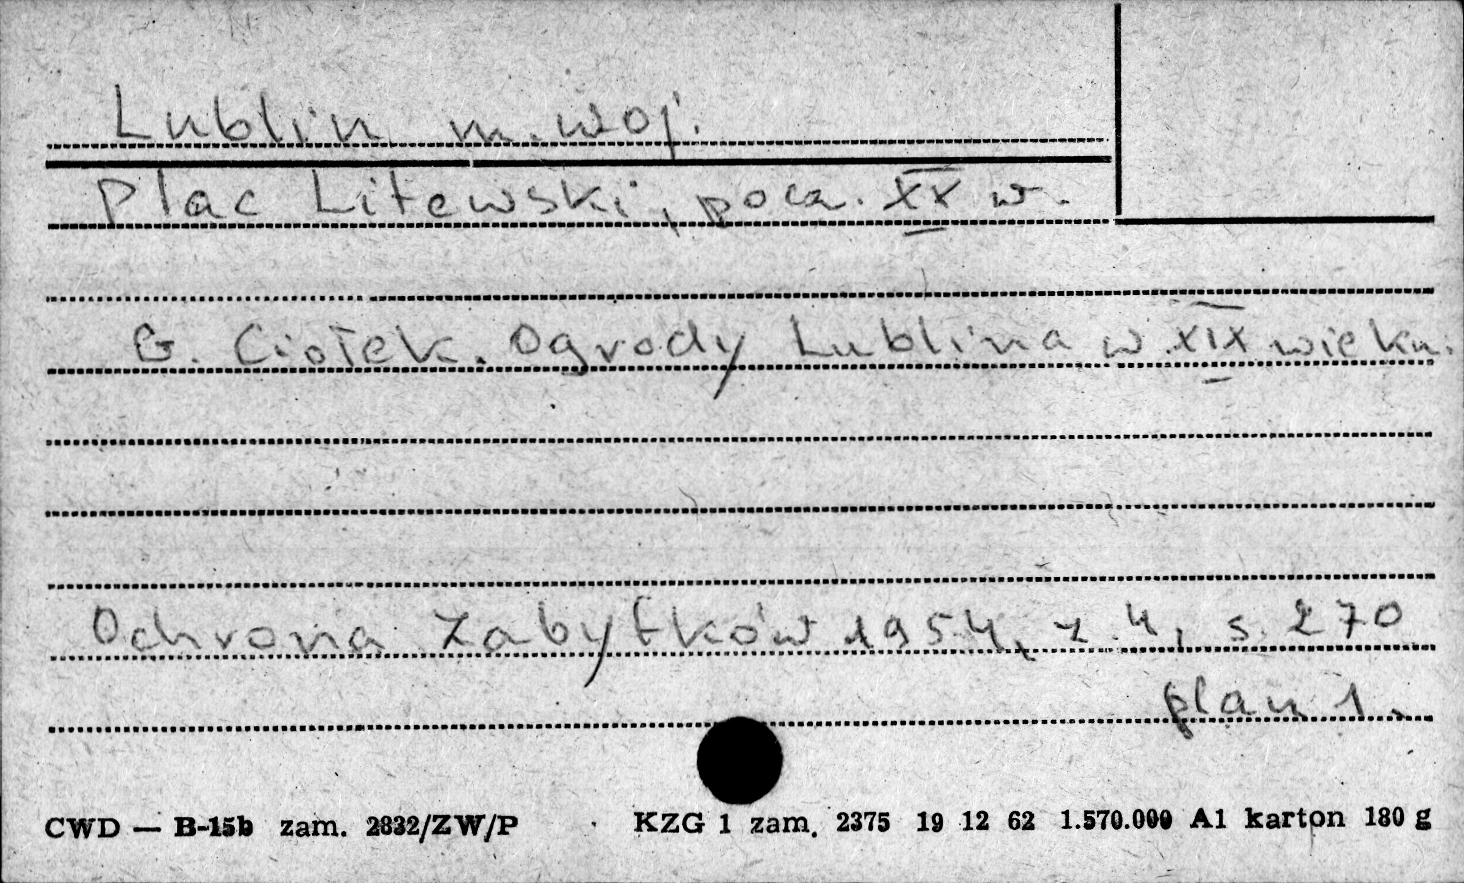 Lublin m. woj.
Plac Litewski, pocz. XX w.
G. Ciołek. Ogrody Lublina w XIX wieku.
Ochrona Zabytków 1954, z. 4, s. 270
plan 1.
CWD — B-15b zam. 2832/ZW/P KZG 1 zam. 2375 19 12 62 1.570.000 A1 karton 180 g